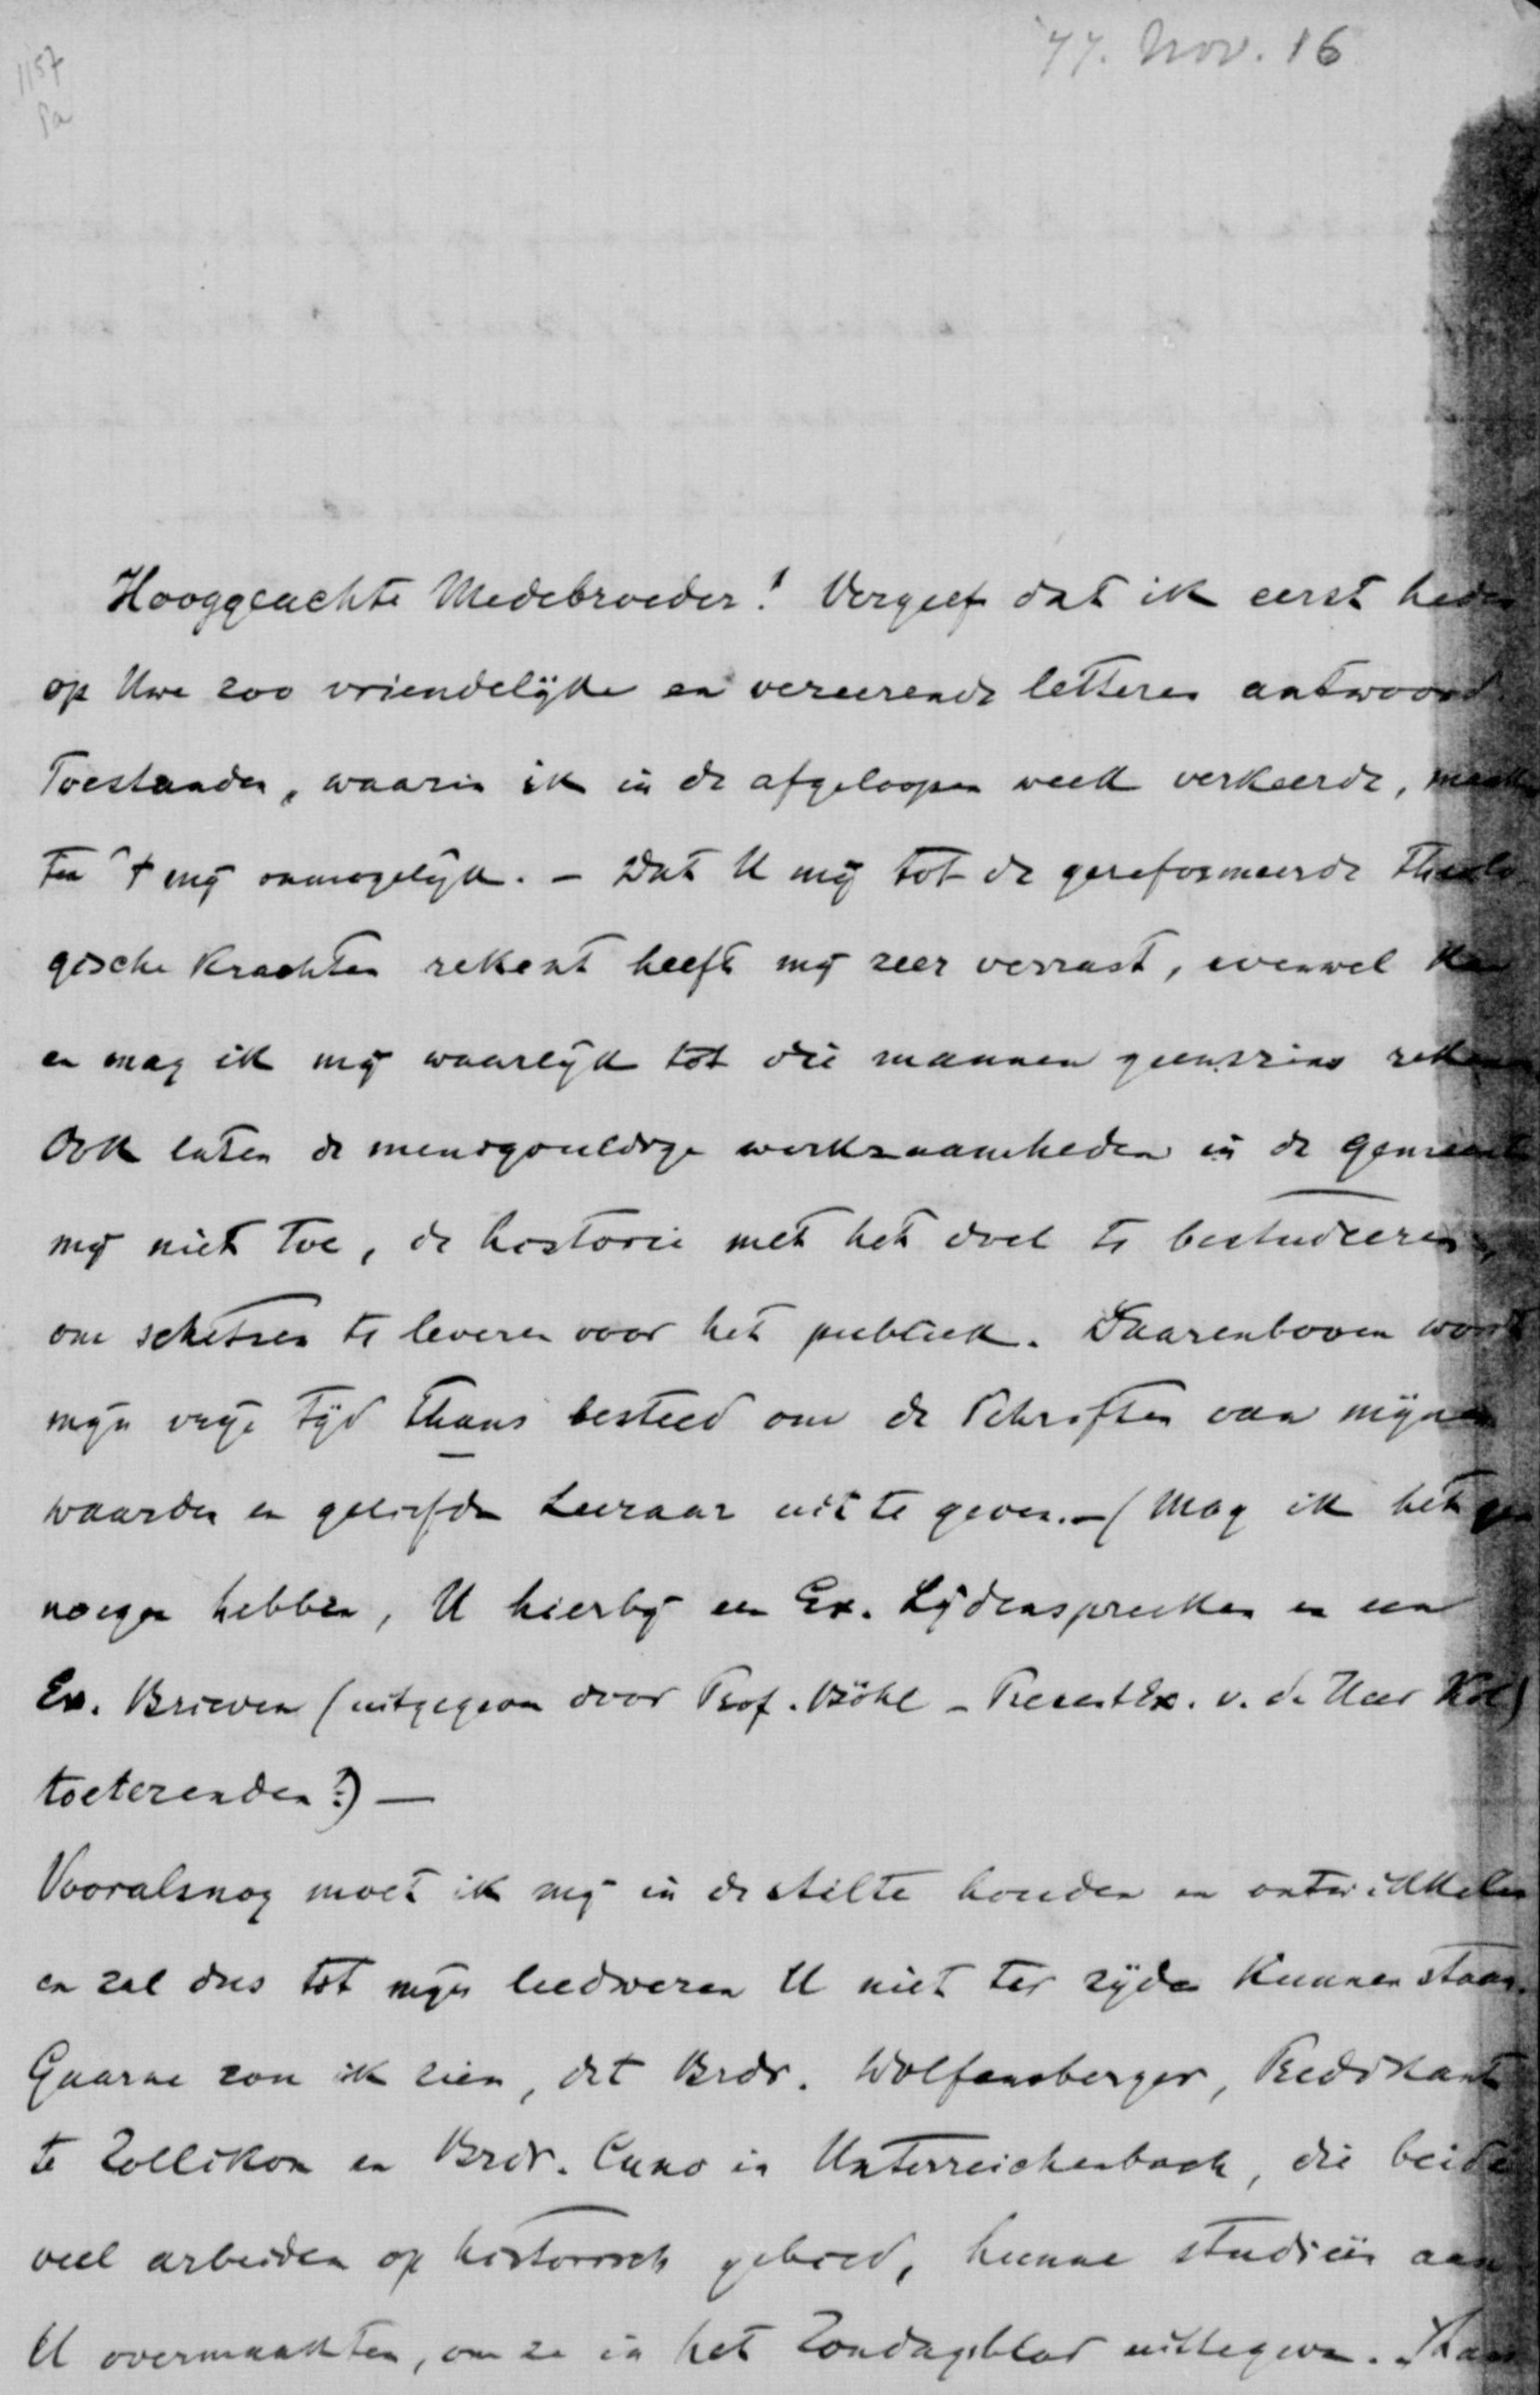 77. Nov. 16
1157
Pa
Hooggeachte Medebroeder! Vergeef dat ik eerst heden
op Uwe zoo vriendelijke en vereerende letteren antwoord.
Toestanden, waarin ik in de afgeloopen week verkeerde, maak
ten 't mij onmogelijk. – Dat U mij tot de gereformeerde Theolo
gische Krachten rekent heeft mij zeer verrast, evenwel kan
en mag ik mij waarlijk tot die mannen geenszins reken
Ook laten de menigvuldige werkzaamheden in de gemeente
mij niet toe, de historie met het doel te bestudeeren,
om schetsen te leveren voor het publiek. Daarenboven wordt
mijn vrije tijd thans besteed om de Schriften van mijnen
waarden en geliefden Leeraar uit te geven. – (Mag ik het ge
noegen hebben, U hierbij een Ex. Lijdenspreeken en een
Ex. Brieven (uitgegeven door Prof. Böhl – Present Ex. v. de Heer Kol)
toetezenden?) —
Vooralsnog moet ik mij in de stilte houden en ontwikkelen
en zal dus tot mijn leedwezen U niet ter zijde kunnen staan.
Gaarne zou ik zien, dat Brdr. Wolfensberger, Predikant
te Zollikon en Brdr. Cuno in Unterreichenbach, die beide
veel arbeiden op historisch gebied, hunne studiën aan
U overmaakten, om ze in het Zondagsblad uittegeven. Thans